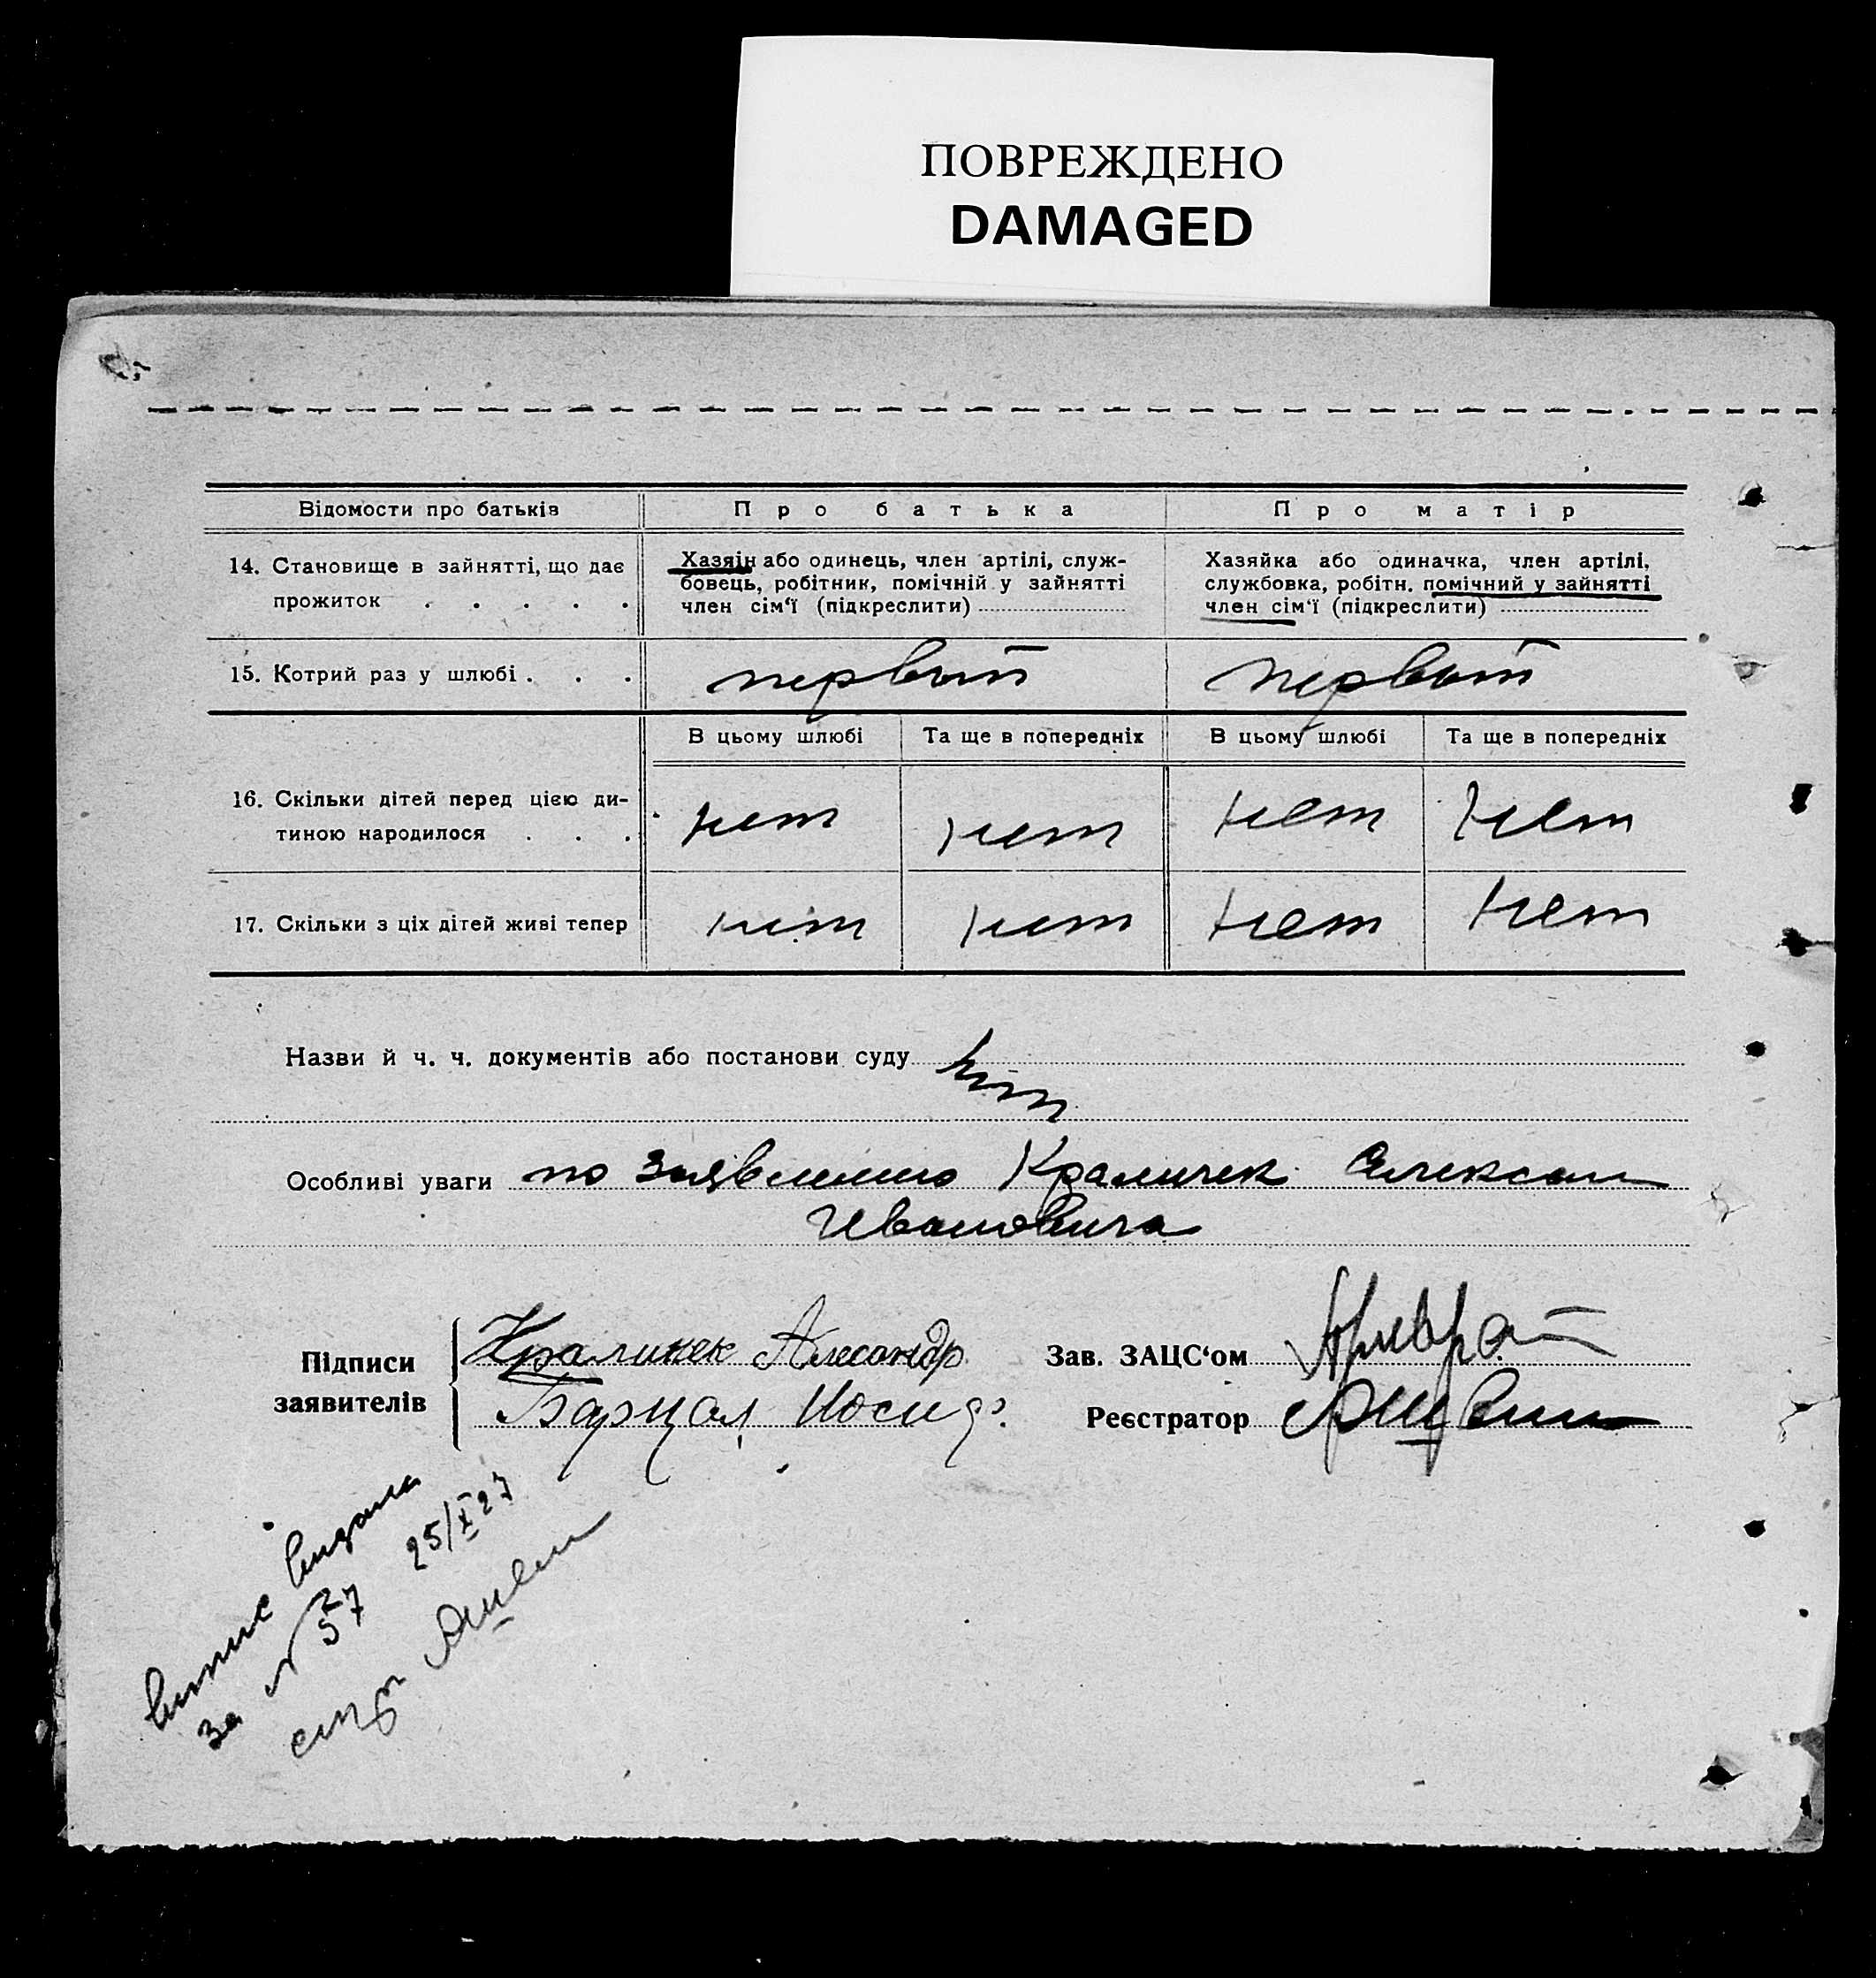 ПОВРЕЖДЕНО
DAMAGED
Відомости про батьків
Про батька
Про матір
14. Становище в зайнятті, що дає
прожиток . . . . .
Хазяїн або одинець, член артілі, служ-
бовець, робітник, помічній у зайнятті
член сім‘ї (підкреслити)
Хазяйка або одиначка, член артілі,
службовка, робітн. помічний у зайнятті
член сім‘ї (підкреслити)
15. Котрий раз у шлюбі . . .
первый
первый
В цьому шлюбі
Та ще в попередніх
В цьому шлюбі
Та ще в попередніх
16. Скільки дітей перед цією ди-
тиною народилося . . .
нет
нет
нет
нет
17. Скільки з ціх дітей живі тепер
нет
нет
нет
нет
Назви й ч. ч. документів або постанови суду нет
Особливі уваги по заявлению Краличек Александ
Ивановича
Підписи
заявителів
Краличек Алесандр
Барцал Иосиф.
Зав. ЗАЦС‘ом
Реєстратор
витис видана
за № 57 25/X 27